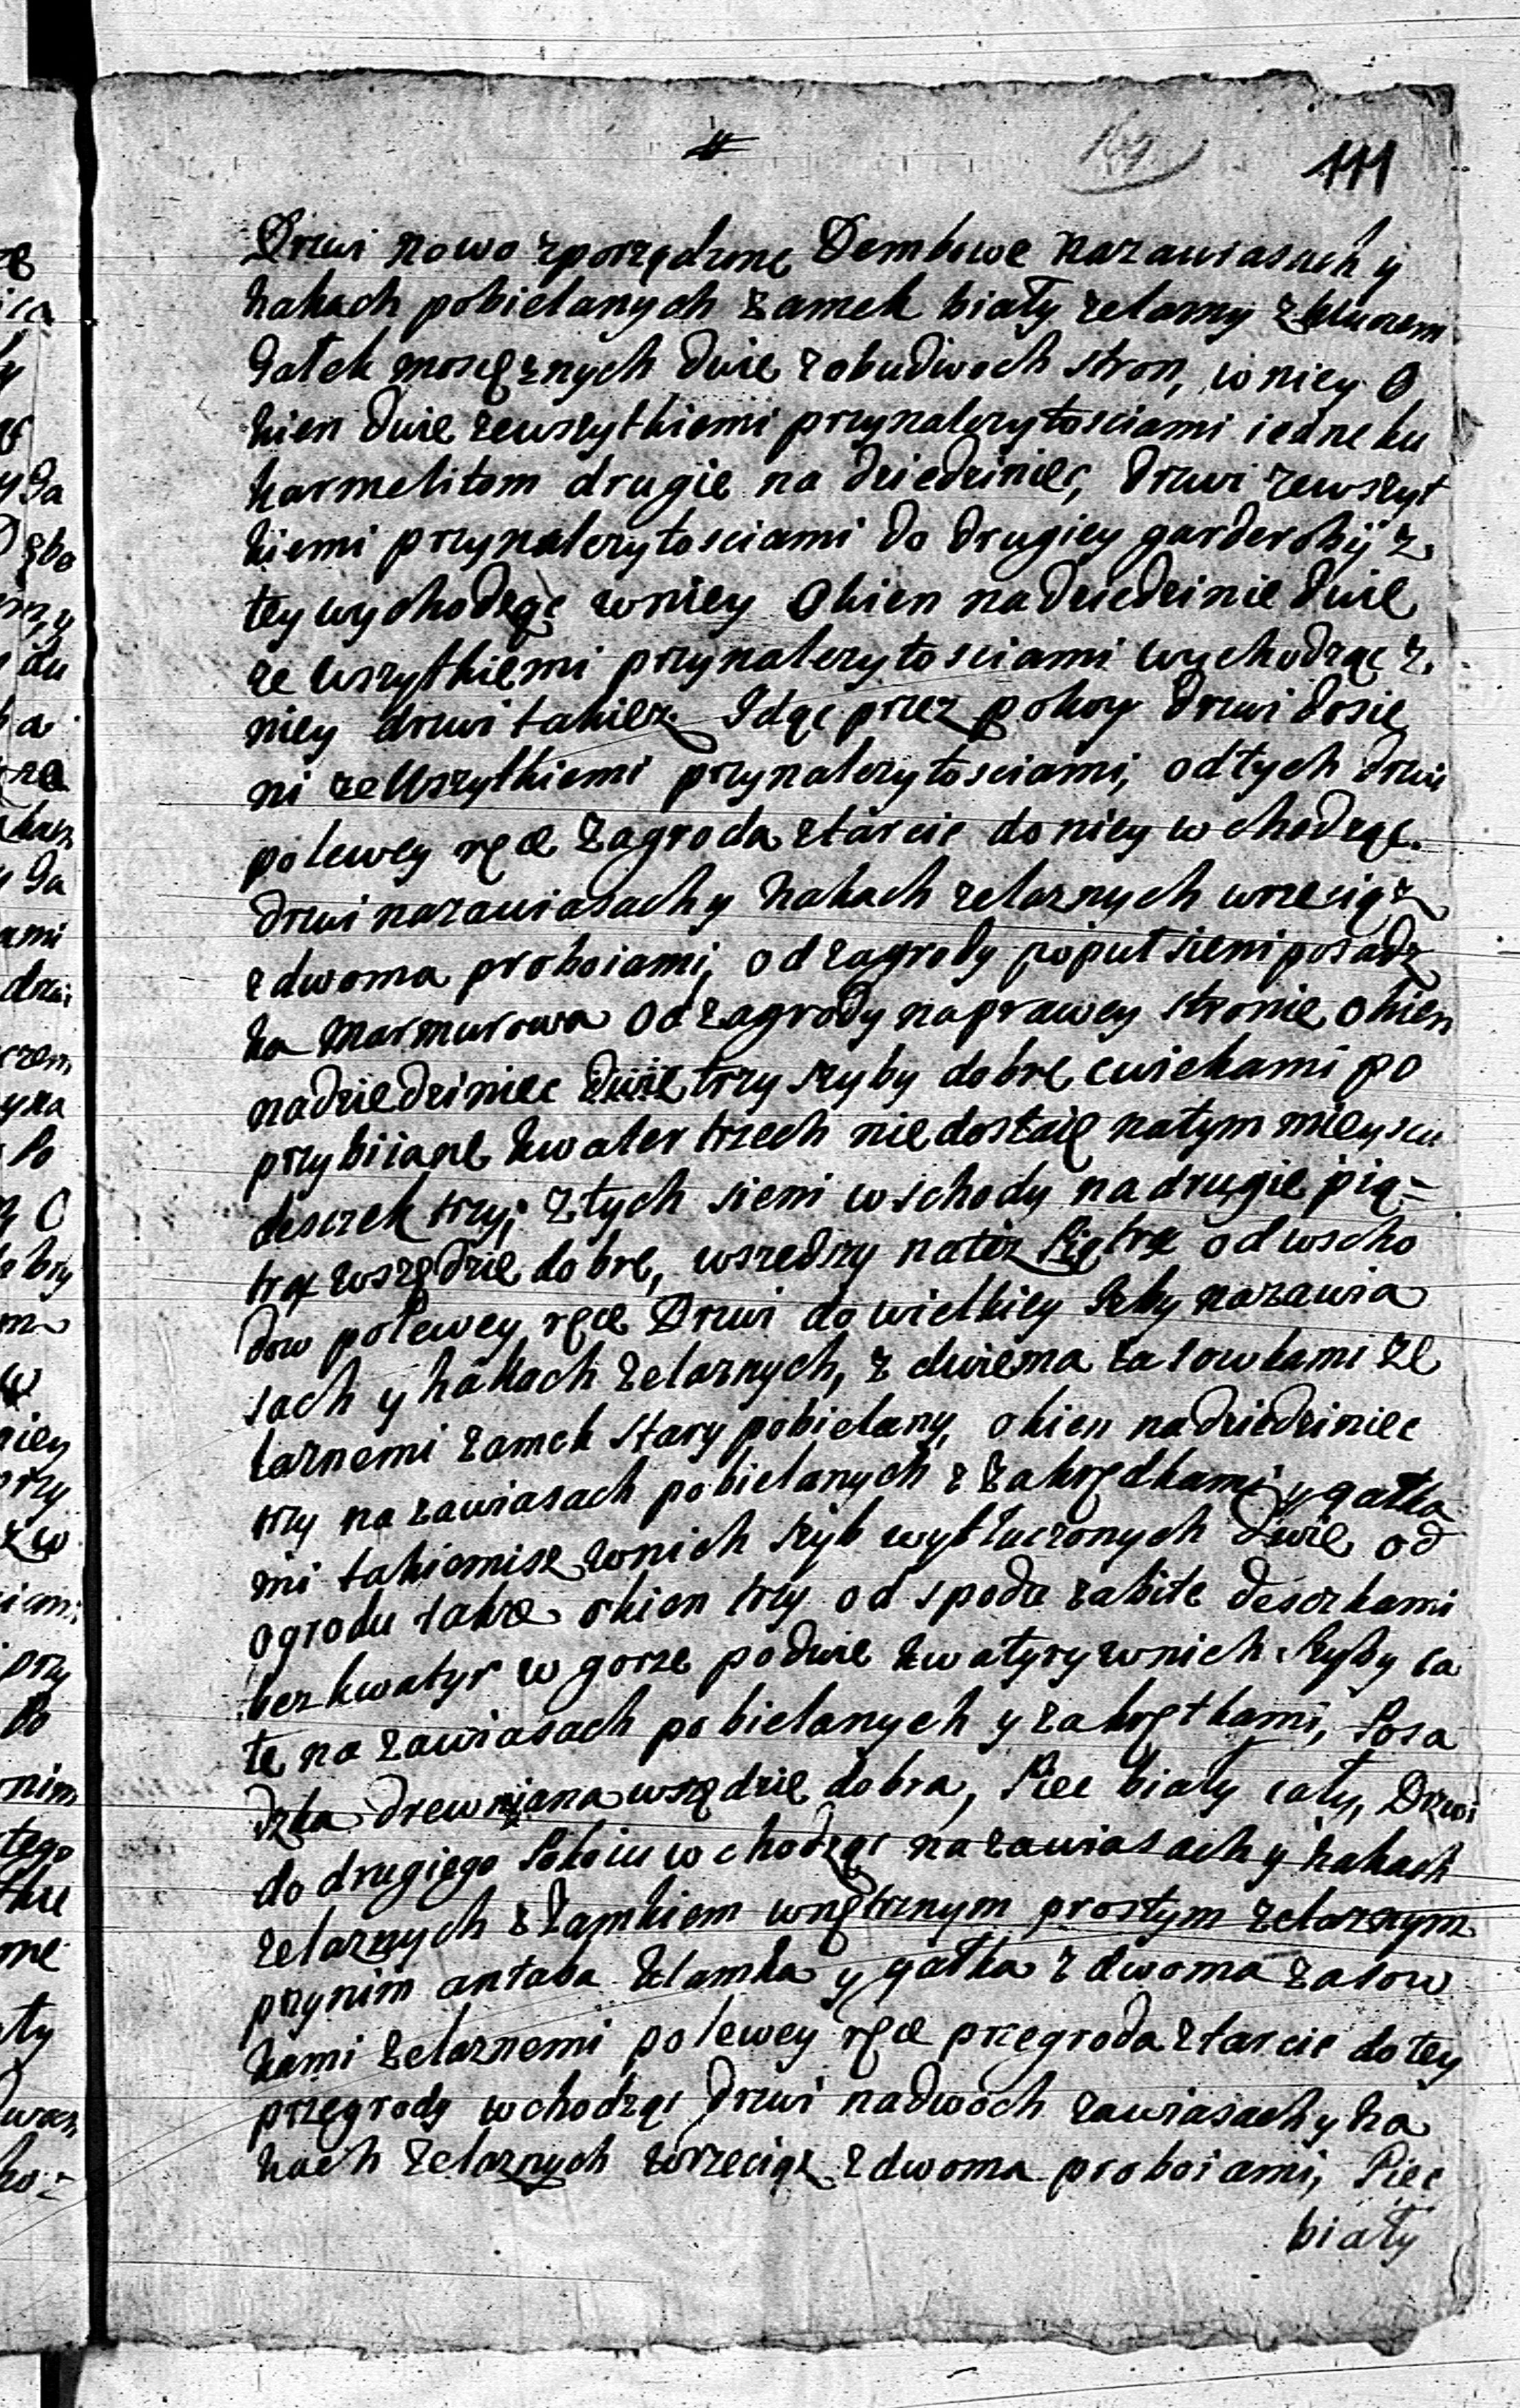 111
Drzwi nowo zporządzone Dembowe nazawiasach y
hakach pobielanych zamek biały zelazny zkluczem
Gałek mosięznych dwie zobudwoch stron, wniey O
kien dwie zewszytkiemi przynalezytosciami iedne ku
karmelitom drugie na dziedziniec, drzwi zewszyt
kiemi przynalezytosciami do drugiey garderoby z
tey wychodząc wniey Okien nadziedzinie dwie
ze wszytkiemi przynalezytosciami wychodząc z
niey drzwi takiez Idąc przez pokoy drzwi dosie
ni zewszytkiemi przynalezytosciami, odtych drzwi
polewey ręce zagroda ztarcic doniey wchodząc.
drzwi nazawiasach y hakach zelaznych wrzeciąz
zdwoma proboiami, odzagrody poput sieni posadz
ka Marmurowa Od zagrody naprawey stronie okien
nadziedziniec dwie trzy szyby dobre cwiekami po
przybiiane kwater trzech niedostaie natym mieyscu
desczek trzy; ztych sieni wschody nadrugie pią=
tre wszędzie dobre, wszedszy natez Piątre odwscho
dow polewey ręce Drzwi dowielkiey Izby nazawia
sach y hakach zelaznych, z dwiema zasowkami ze
laznemi zamek stary pobielany, okien nadziedziniec
trzy na zawiasach pobielanych z zakrędkami y gałka
mi takiemisz wnich szyb wytłuczonych dwie od
ogrodu takze okien trzy od spodu zabite desczkami
bez kwatyr w gorze podwie kwatyry wnich Szyby ca
łe na zawiasach pobielanych y zakrętkami, Posa
dzka drewniana wszędzie dobra, Piec biały cały, Drzwi
do drugiego Pokoiu wchodząc nazawiasach y hakach
zelaznych zzamkiem wnętrznym prostym zelaznym
przynim antaba klamka y gałka z dwoma zasow
kami zelaznemi polewey ręce przegroda ztarcic dotey
przegrody wchodząc drzwi nadwoch zawiasach y ha
kach zelaznych wrzeciąz zdwoma proboiami, Piec
biały